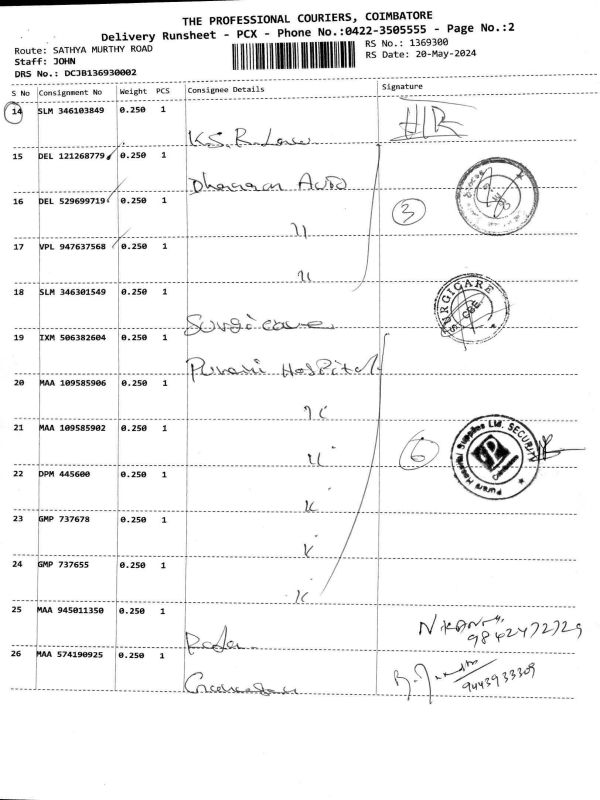 THE PROFESSIONAL COURIERS, COIMBATORE
Delivery Runsheet - PCX - Phone No.:0422-3505555 - Page No.:2
Route: SATHYA MURTHY ROAD
RS No.: 1369300
Staff: JOHN
RS Date: 20-May-2024
DRS No.: DCJB136930002
S No Consignment No Weight PCS Consignee Details Signature
14 SLM 346103849 0.250 1
K.S.R.
15 DEL 121268779 0.250 1
Auto
16 DEL 529699719 0.250 1
3
17 VPL 947637568 0.250 1
18 SLM 346301549 0.250 1
SURGICARE
CBE.
Surgicare
19 IXM 506382604 0.250 1
Purani Hospital
20 MAA 109585906 0.250 1
21 MAA 109585902 0.250 1
6
Hospital Supplies Ltd. SECURITY
22 DPM 445600 0.250 1
23 GMP 737678 0.250 1
24 GMP 737655 0.250 1
25 MAA 945011350 0.250 1
9842472729
26 MAA 574190925 0.250 1
9443933309